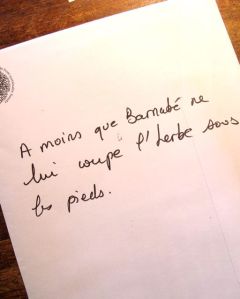 A moins que Barnabé ne
lui coupe l'herbe sous
les pieds.